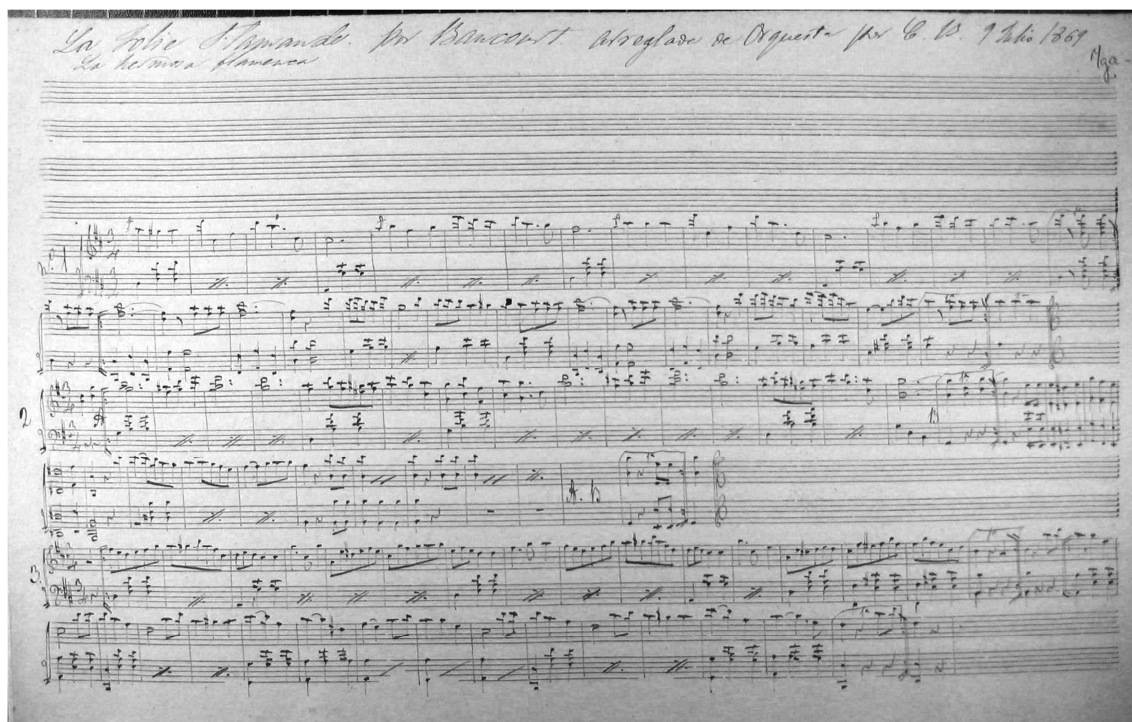 La Folie Flamande. por Bancourt. arreglada de Orquesta por C. B. 9 Julio 1869
La hermosa flamenca
Mga-
No. 1
2
A. B
3.